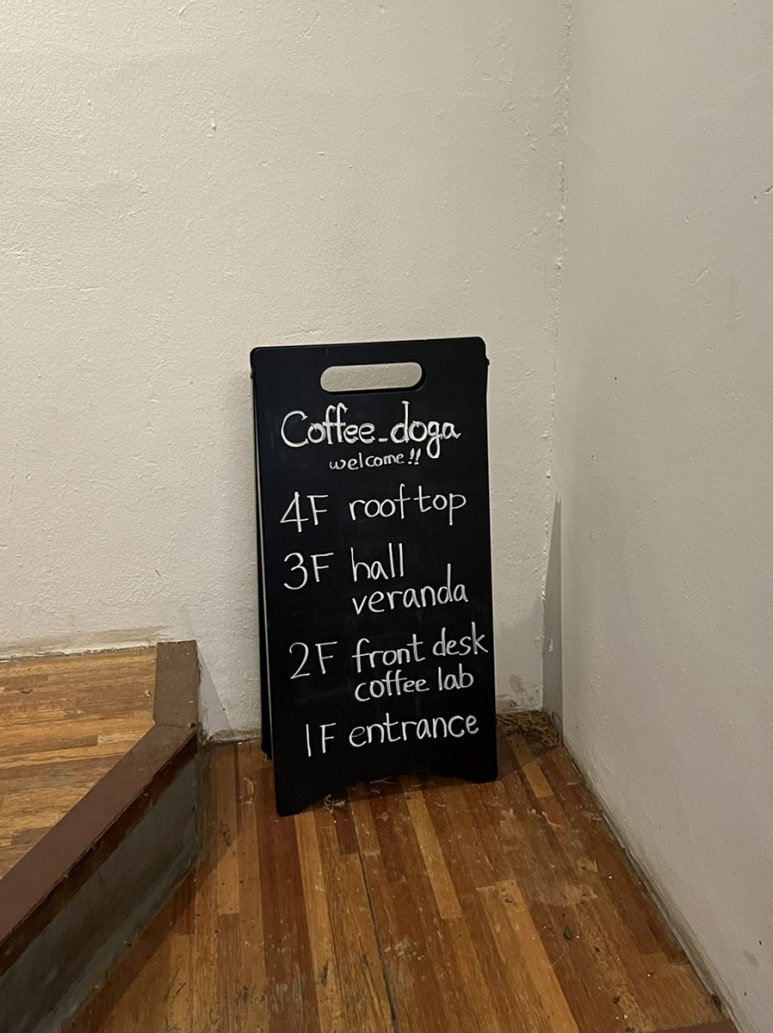 Coffee_doga
welcome!!
4F rooftop
3F hall
veranda
2F front desk
coffee lab
1F entrance